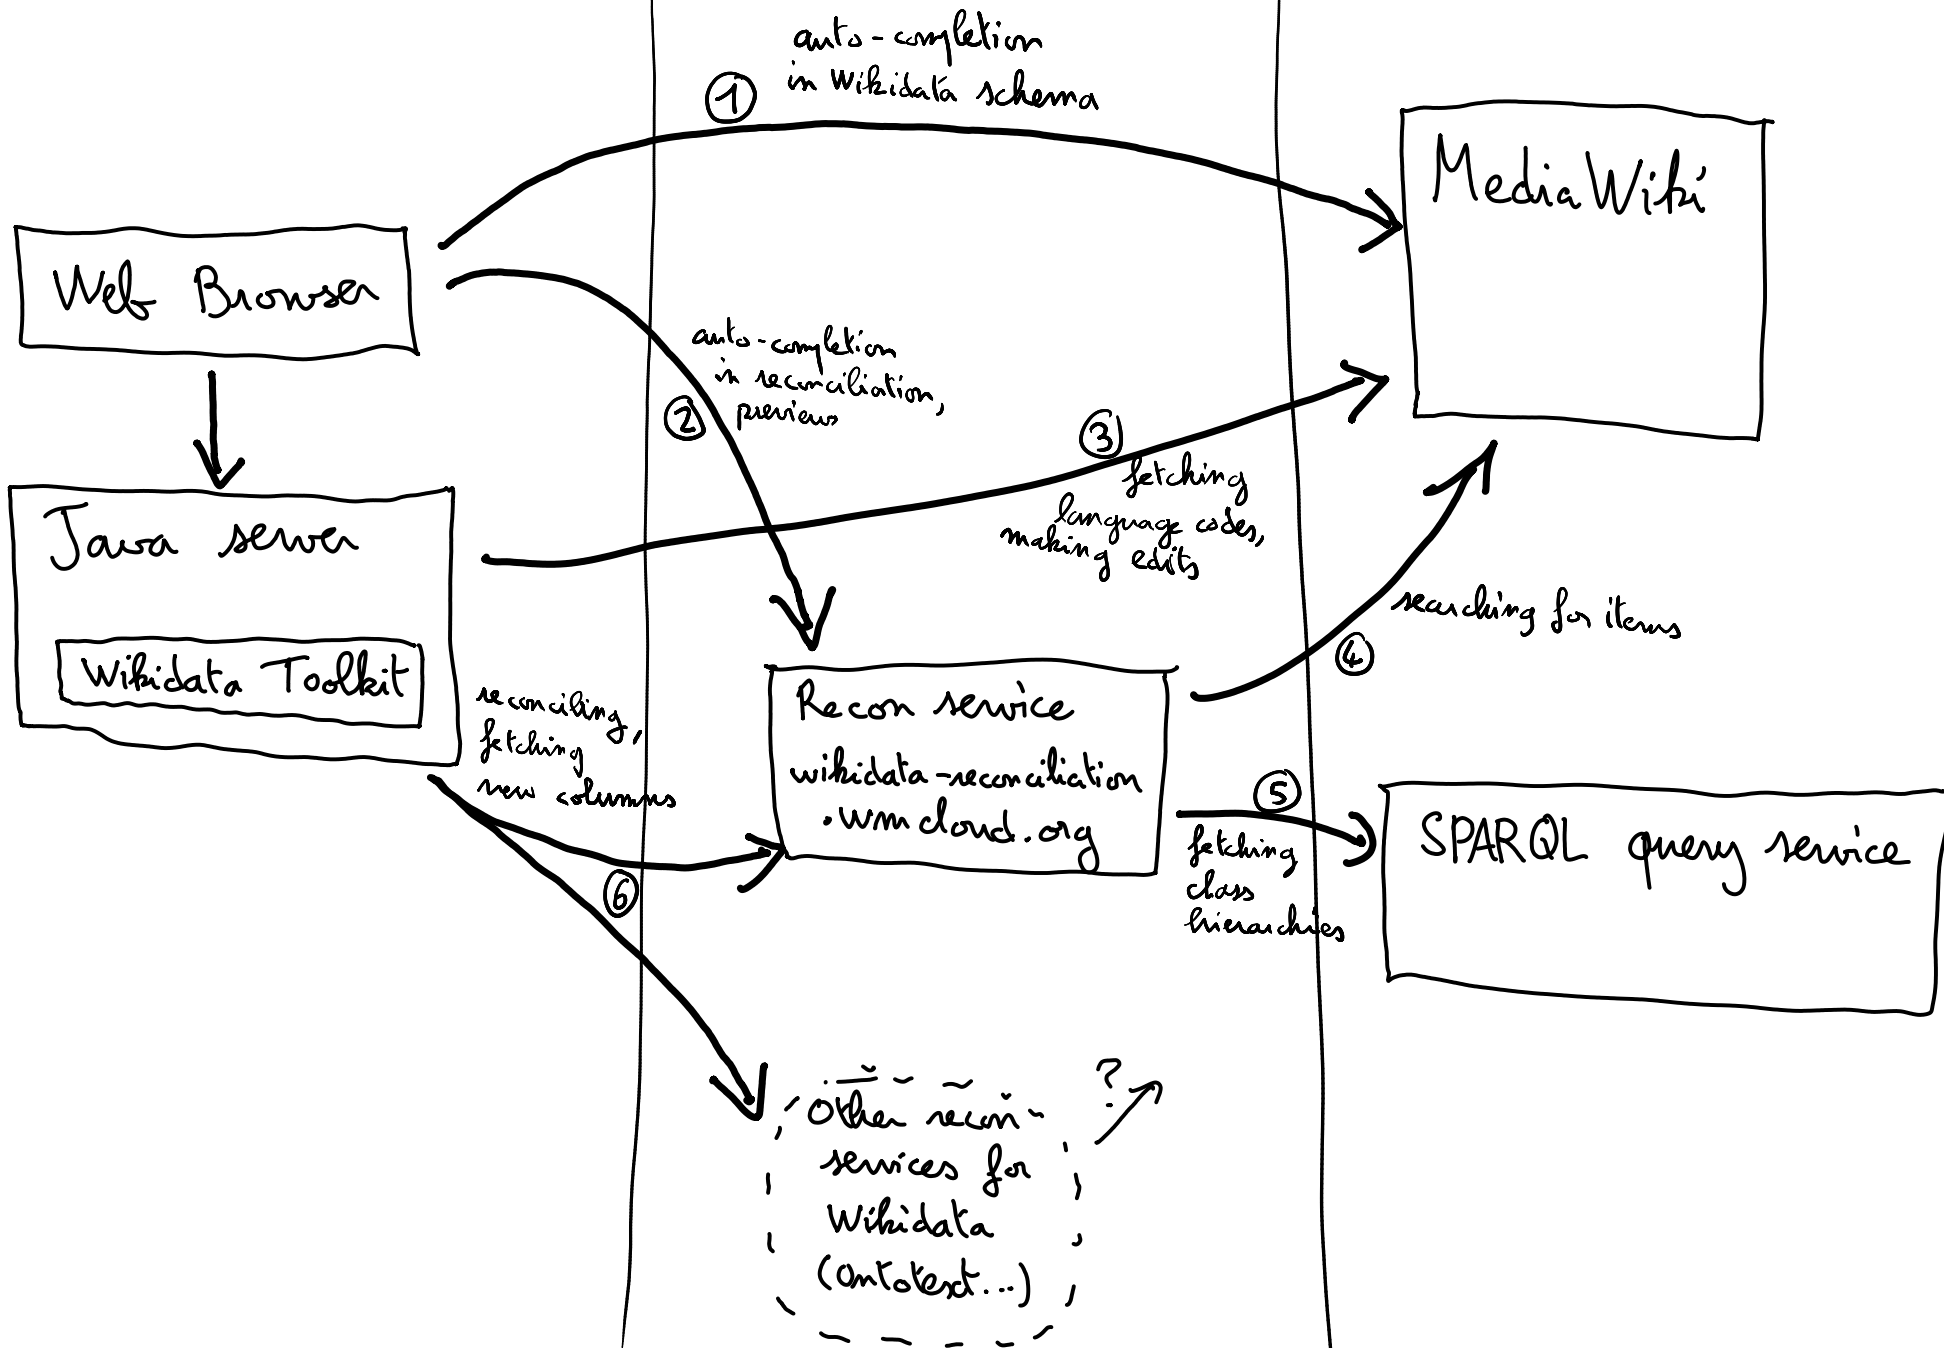 auto-completion
in Wikidata schema
1
MediaWiki
Web Browser
auto-completion
in reconciliation,
previews
2
3
fetching
language codes,
making edits
Java server
Wikidata Toolkit
searching for items
4
reconciling,
fetching
new columns
6
Recon service
wikidata-reconciliation
.wmcloud.org
5
fetching
class
hierarchies
SPARQL query service
?
Other recon
services for
Wikidata
(Ontotext...)